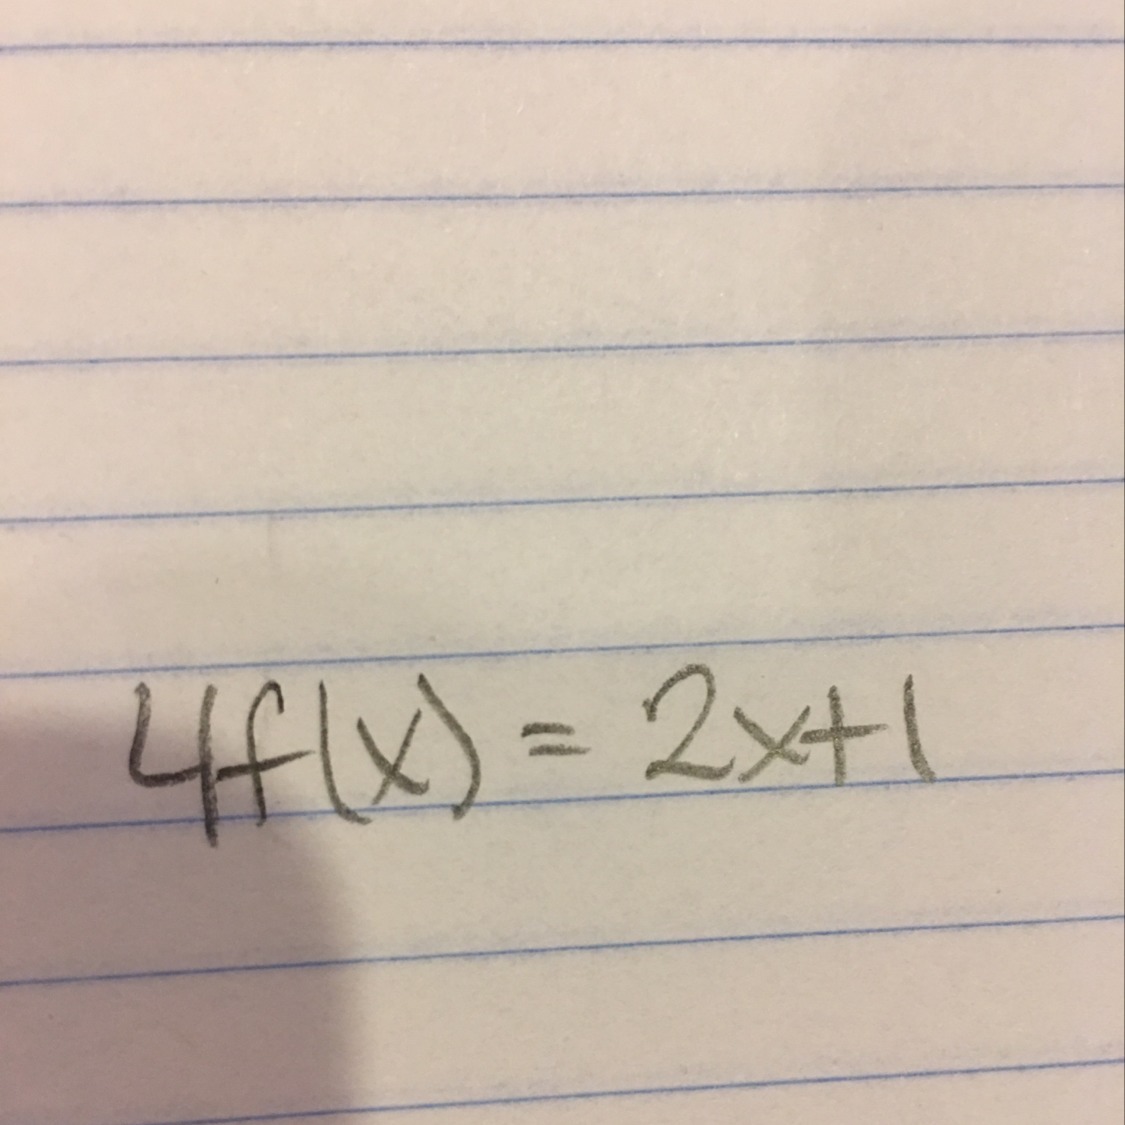 4f(x) = 2x+1